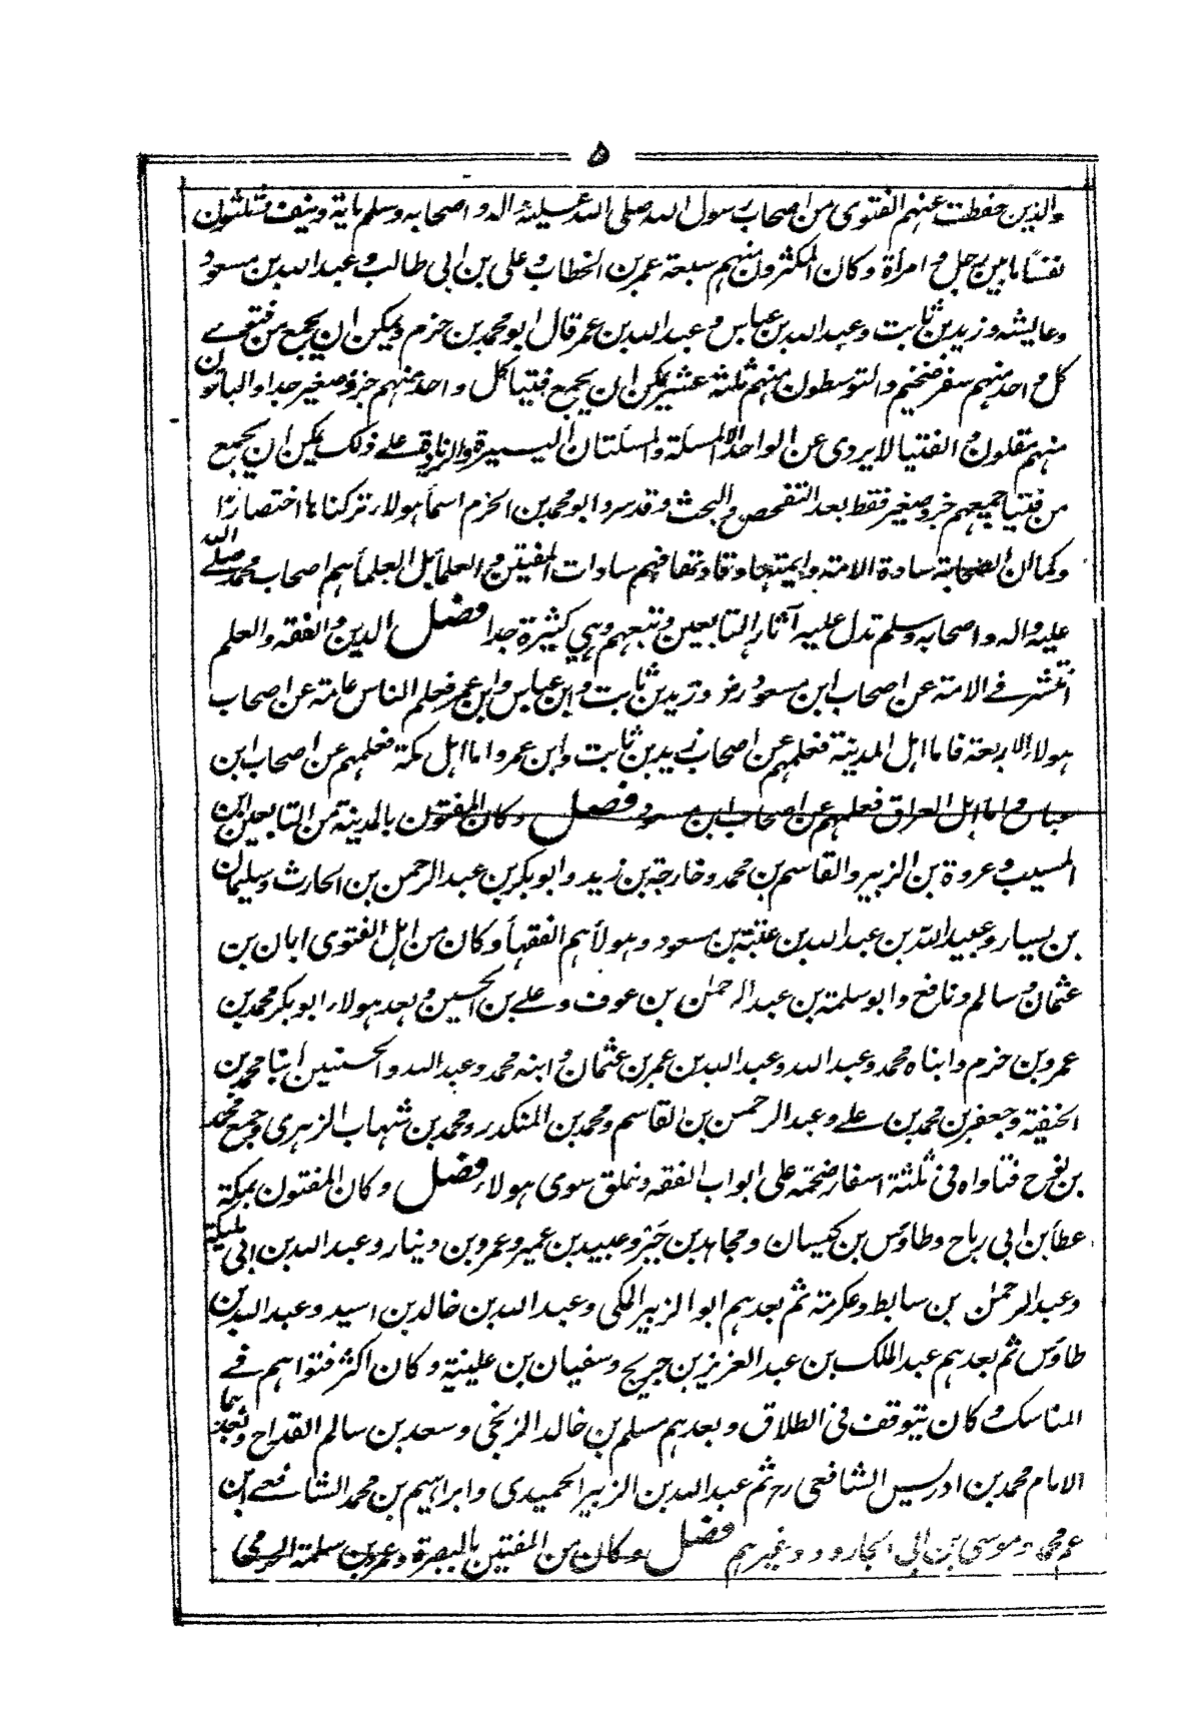 ٥
والذين حفظت عنهم الفتوى من اصحاب رسول الله صلى الله عليه واله واصحابه وسلم ماية ونيف وثلثون
نفسا ما بين رجل و امرأة وكان المكثرون منهم سبعة عمر بن الخطاب و على بن ابى طالب و عبد الله بن مسعود
وعايشه وزيد بن ثابت وعبد الله بن عباس و عبد الله بن عمر قال ابو محمد بن حزم ويمكن ان يجمع من فتوے
كل واحد منهم سفر ضخيم والمتوسطون منهم ثلثة عشر يمكن ان يجمع فتيا كل واحد منهم جزء صغير جدا والباقون
منهم مقلون و الفتيا لا يروى عن الواحد الا المسئلة والمسئلتان اليسيرة والزيادة على ذلك يمكن ان يجمع
من فتيا جميعهم جزء صغير فقط بعد التفحص والبحث وقد سرد ابو محمد بن الحزم اسمأ هولاء تركناها اختصارا
وكما ان الصحابة سادة الامته وايمتها وقادتها فهم سادات المفتين و العلمأ بل العلمأ هم اصحاب محمد صلے الله
عليه واله واصحابه وسلم تدل عليه آثار التابعين و تبعهم وهي كثيرة جدا فصل الدين والفقه والعلم
انتشر فے الامته عن اصحاب ابن مسعود رض و زيد بن ثابت و ابن عباس وابن عمر فعلم الناس عامة عن اصحاب
هولاء الاربعة فاما اهل المدينة فعلمهم عن اصحاب زيد بن ثابت وابن عمر واما اهل مكة فعلمهم عن اصحاب ابن
عباس و اما اهل العراق فعلمهم عن اصحاب ابن مسعود فصل وكان المفتون بالمدينة من التابعين ابن
المسيب و عروة بن الزبير والقاسم بن محمد وخارجة بن زيد وابو بكر بن عبد الرحمن بن الحارث وسليمان
بن يسار وعبيد الله بن عبد الله بن عتبة بن مسعود وهولأ هم الفقهأ وكان من اهل الفتوى ابان بن
عثمان و سالم ونافع وابو سلمة بن عبد الرحمٰن بن عوف وعلے بن الحسين و بعد هولاء ابو بكر محمد بن
عمرو بن حزم وابناه محمد وعبد الله وعبد الله بن عمر بن عثمان و ابنه محمد وعبد الله والحسنين ابنا محمد بن
الحنفية وجعفر بن محمد بن علے وعبد الرحمن بن القاسم ومحمد بن المنكدر ومحمد بن شهاب الزهرى وجمع محمد
بن نفرح فتاواه فى ثلثة اسفار ضخمة على ابواب الفقه وخلق سوى هولاء فصل وكان المفتون بمكة
عطأ بن ابى رباح وطاؤس بن كيسان ومجاهد بن جبر وعبيد بن عمير وعمرو بن دينار وعبد الله بن ابى مليكة
وعبد الرحمٰن بن سابط وعكرمة ثم بعدهم ابو الزبير المكى وعبد الله بن خالد بن اسيد وعبد الله بن
طاؤس ثم بعدهم عبد الملك بن عبد العزيز بن جريج وسفيان بن عيينة وكان اكثر فتواهم فے
المناسك و كان يتوقف فى الطلاق وبعدهم مسلم بن خالد الزنجى وسعد بن سالم القداح وبعدهما
الامام محمد بن ادريس الشافعى رح ثم عبد الله بن الزبير الحميدى وابراهيم بن محمد الشافعے ابن
عم محمد وموسى بن ابى الجارود وغيرهم فصل وكان من المفتين بالبصرة وعمرو بن سلمة الجرمى